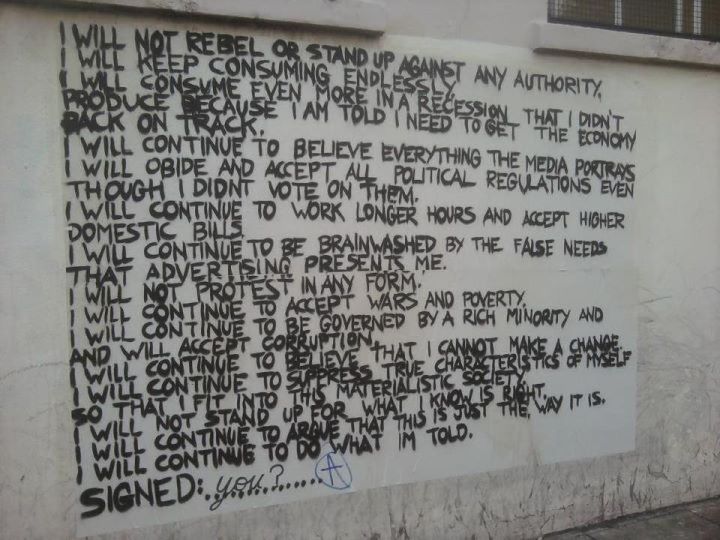 I WILL NOT REBEL OR STAND UP AGAINST ANY AUTHORITY.
I WILL KEEP CONSUMING ENDLESSLY.
I WILL CONSUME EVEN MORE IN A RECESSION THAT I DIDN'T
PRODUCE BECAUSE I AM TOLD I NEED TO GET THE ECONOMY
BACK ON TRACK.
I WILL CONTINUE TO BELIEVE EVERYTHING THE MEDIA PORTRAYS
I WILL OBIDE AND ACCEPT ALL POLITICAL REGULATIONS EVEN
THOUGH I DIDNT VOTE ON THEM.
I WILL CONTINUE TO WORK LONGER HOURS AND ACCEPT HIGHER
DOMESTIC BILLS
I WILL CONTINUE TO BE BRAINWASHED BY THE FALSE NEEDS
THAT ADVERTISING PRESENTS ME.
I WILL NOT PROTEST IN ANY FORM.
I WILL CONTINUE TO ACCEPT WARS AND POVERTY.
I WILL CONTINUE TO BE GOVERNED BY A RICH MINORITY AND
AND WILL ACCEPT CORRUPTION.
I WILL CONTINUE TO BELIEVE THAT I CANNOT MAKE A CHANGE.
I WILL CONTINUE TO SUPPRESS TRUE CHARACTERISTICS OF MYSELF
SO THAT I FIT INTO THIS MATERIALISTIC SOCIETY.
I WILL NOT STAND UP FOR WHAT I KNOW IS RIGHT.
I WILL CONTINUE TO ARGUE THAT THIS IS JUST THE WAY IT IS.
I WILL CONTINUE TO DO WHAT IM TOLD.
SIGNED: you? A